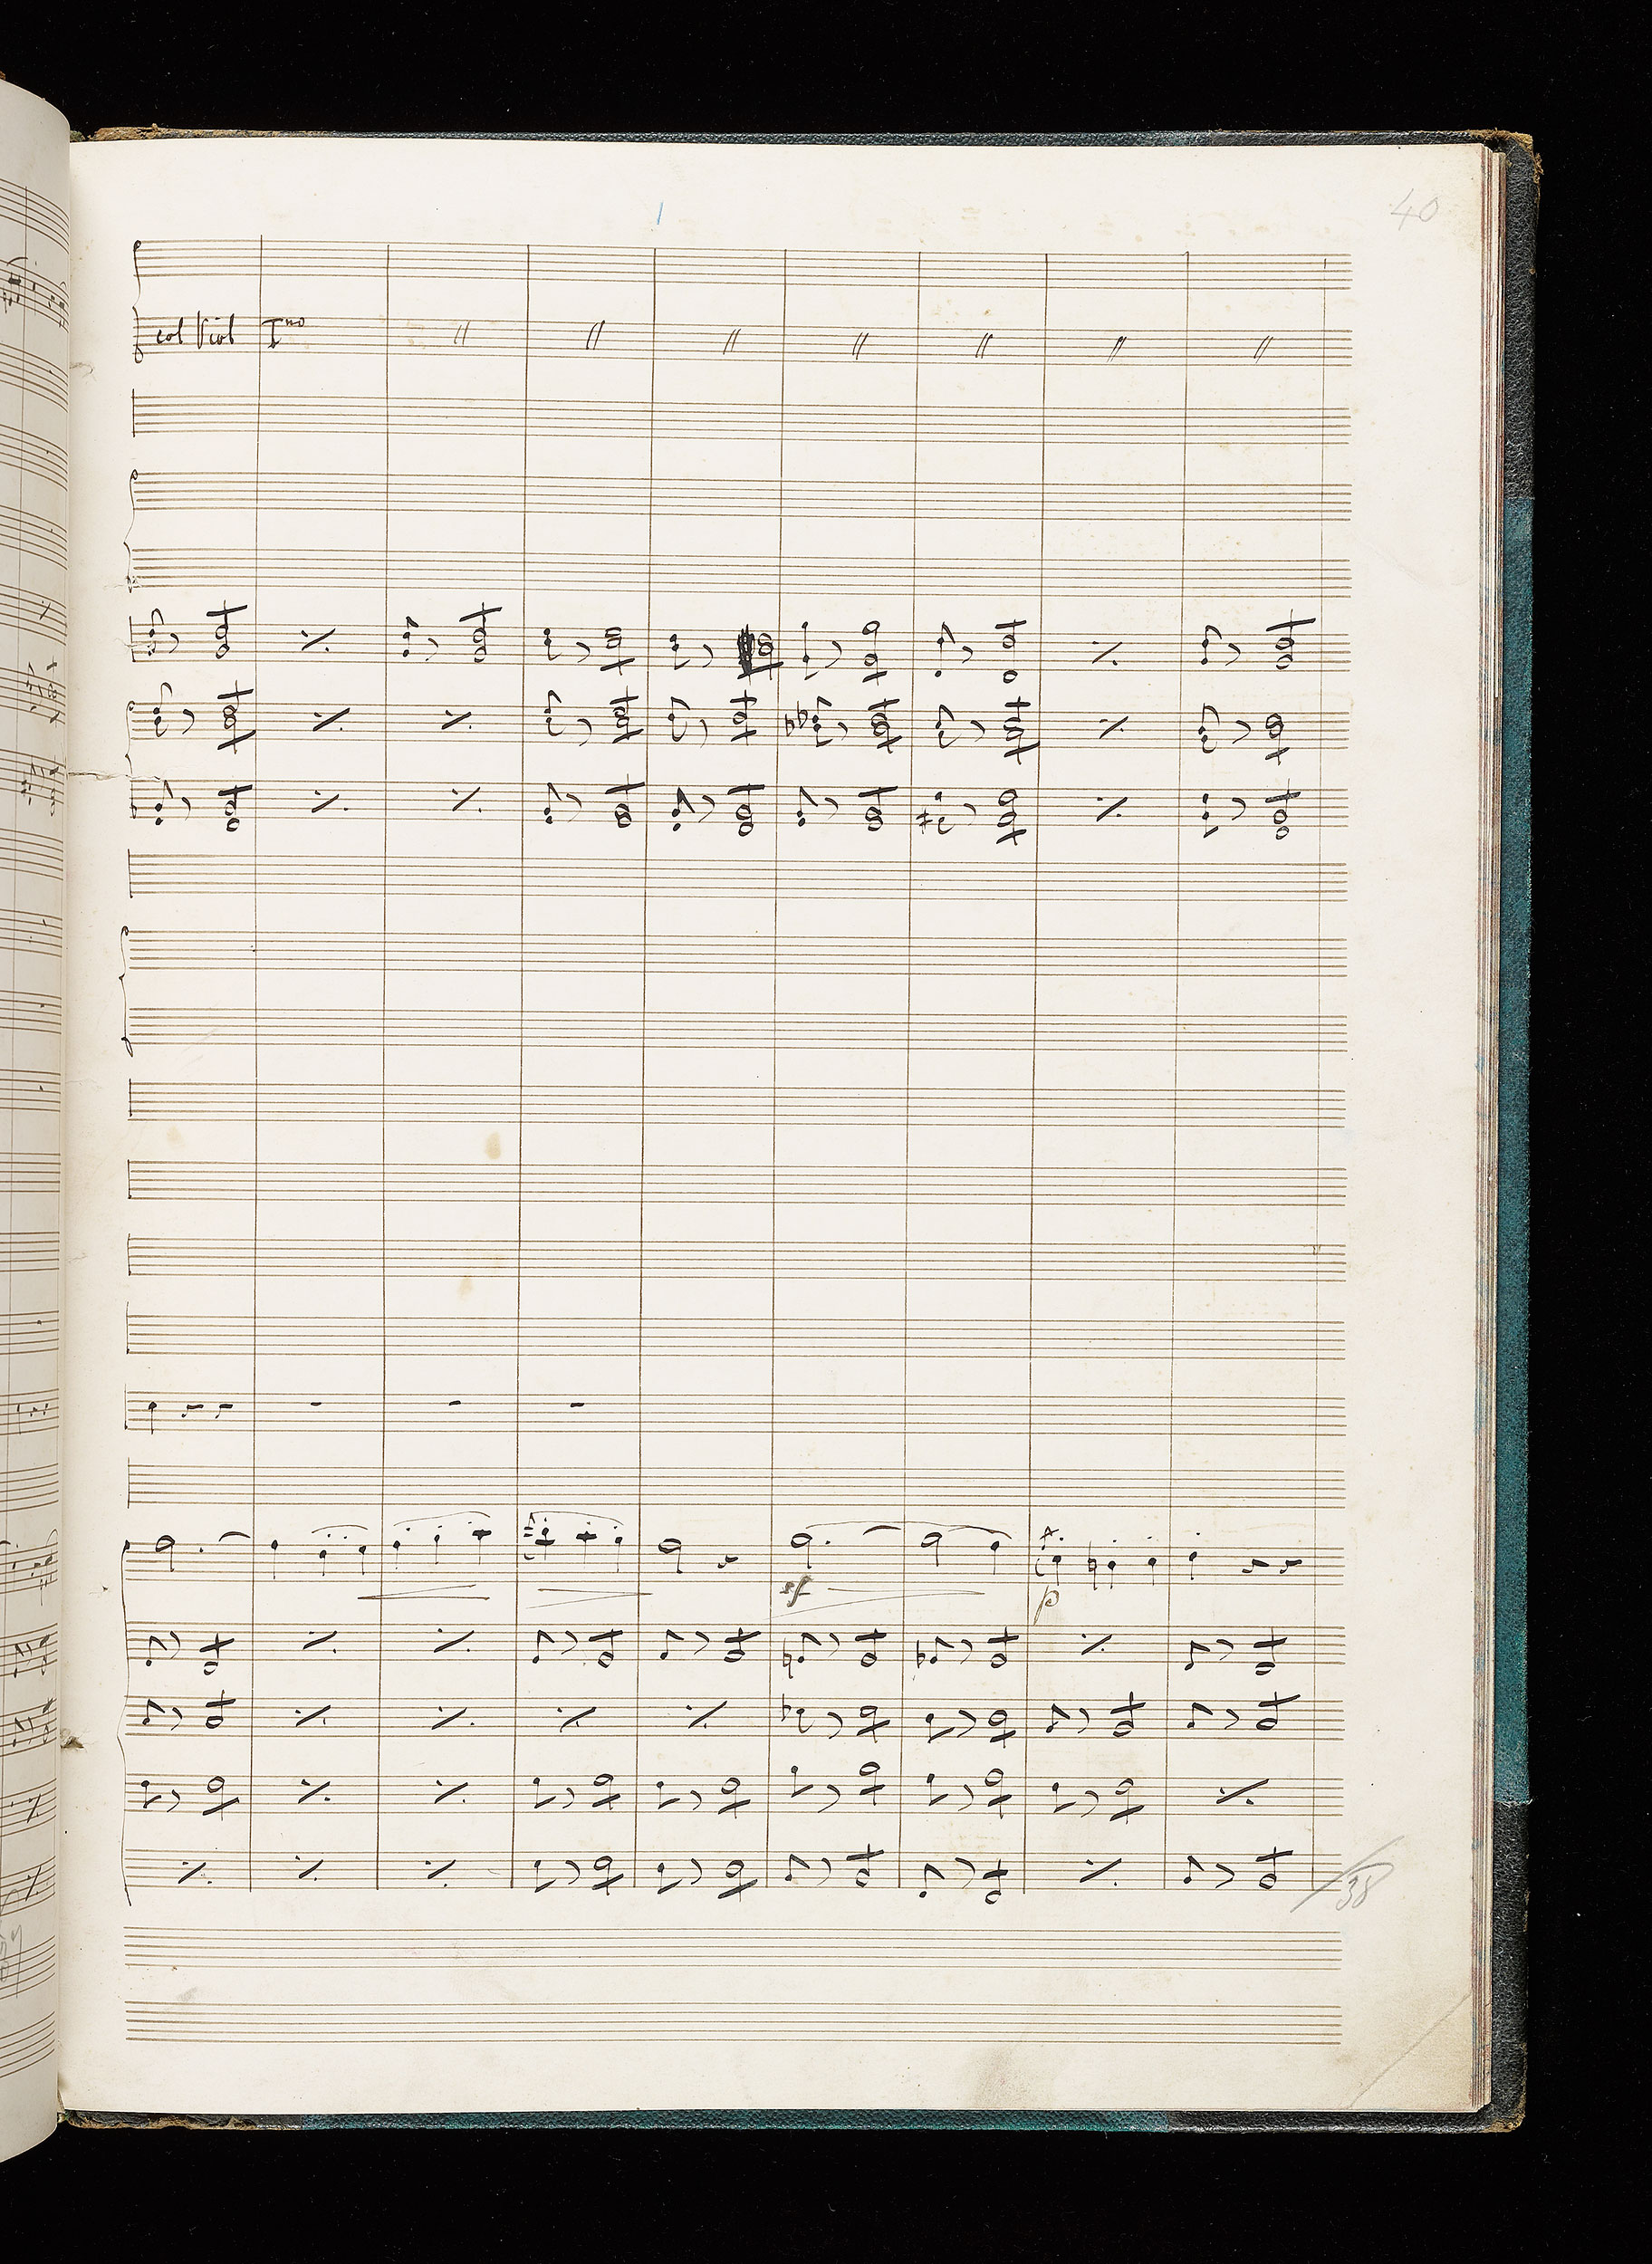 40
col Viol Imo
sf
p
38